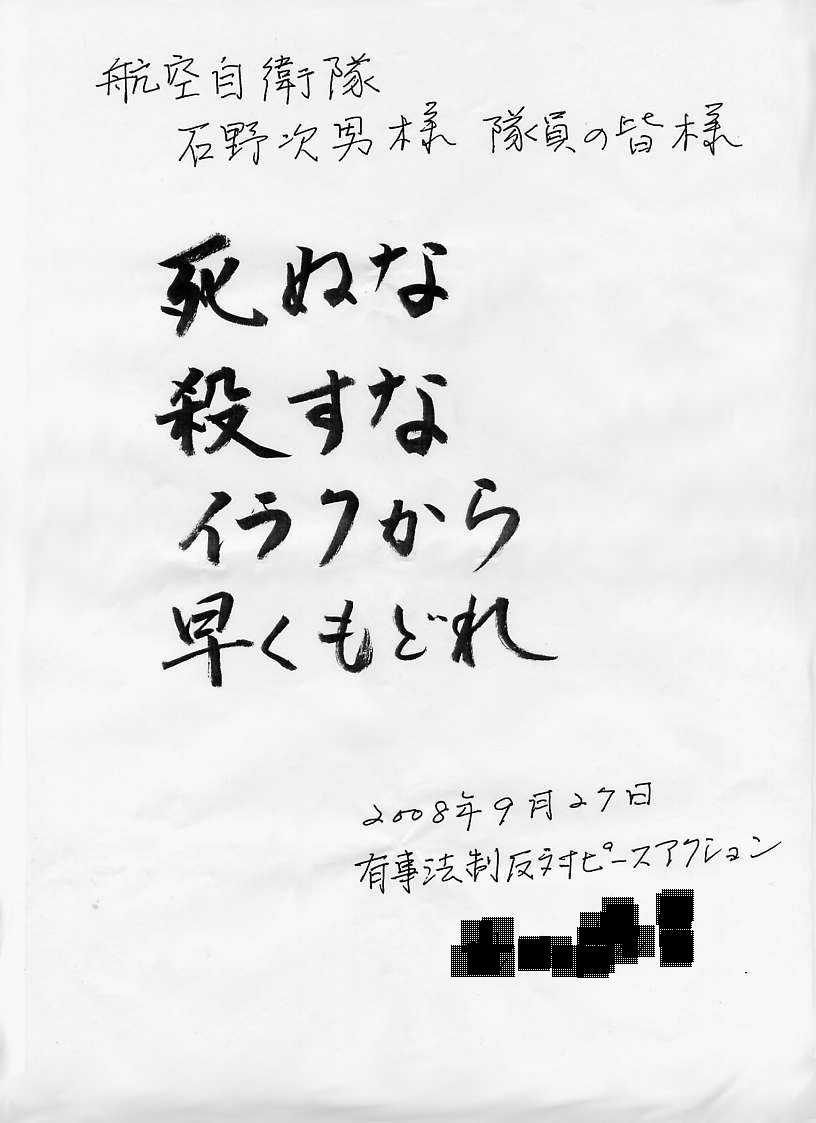 航空自衛隊
石野次男様 隊員の皆様
死ぬな
殺すな
イラクから
早くもどれ
2008年9月27日
有事法制反対ピースアクション